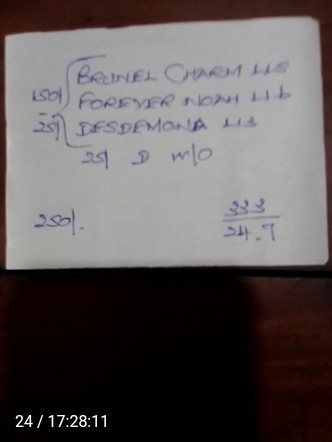 150/ BRUNEL CHARM 4.15
FOREVER NOAH 4.16
25/ DESDEMONA 4.3
25/ D W/O
250/.
33.3
24.9
24 / 17:28:11